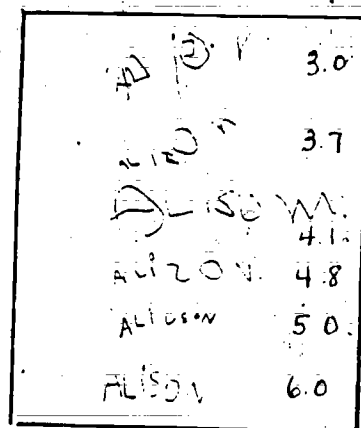 3.0
ALIZON 3.7
ALISON
4.1.
ALIZON 4.8
ALIUSON 5.0.
ALISON 6.0